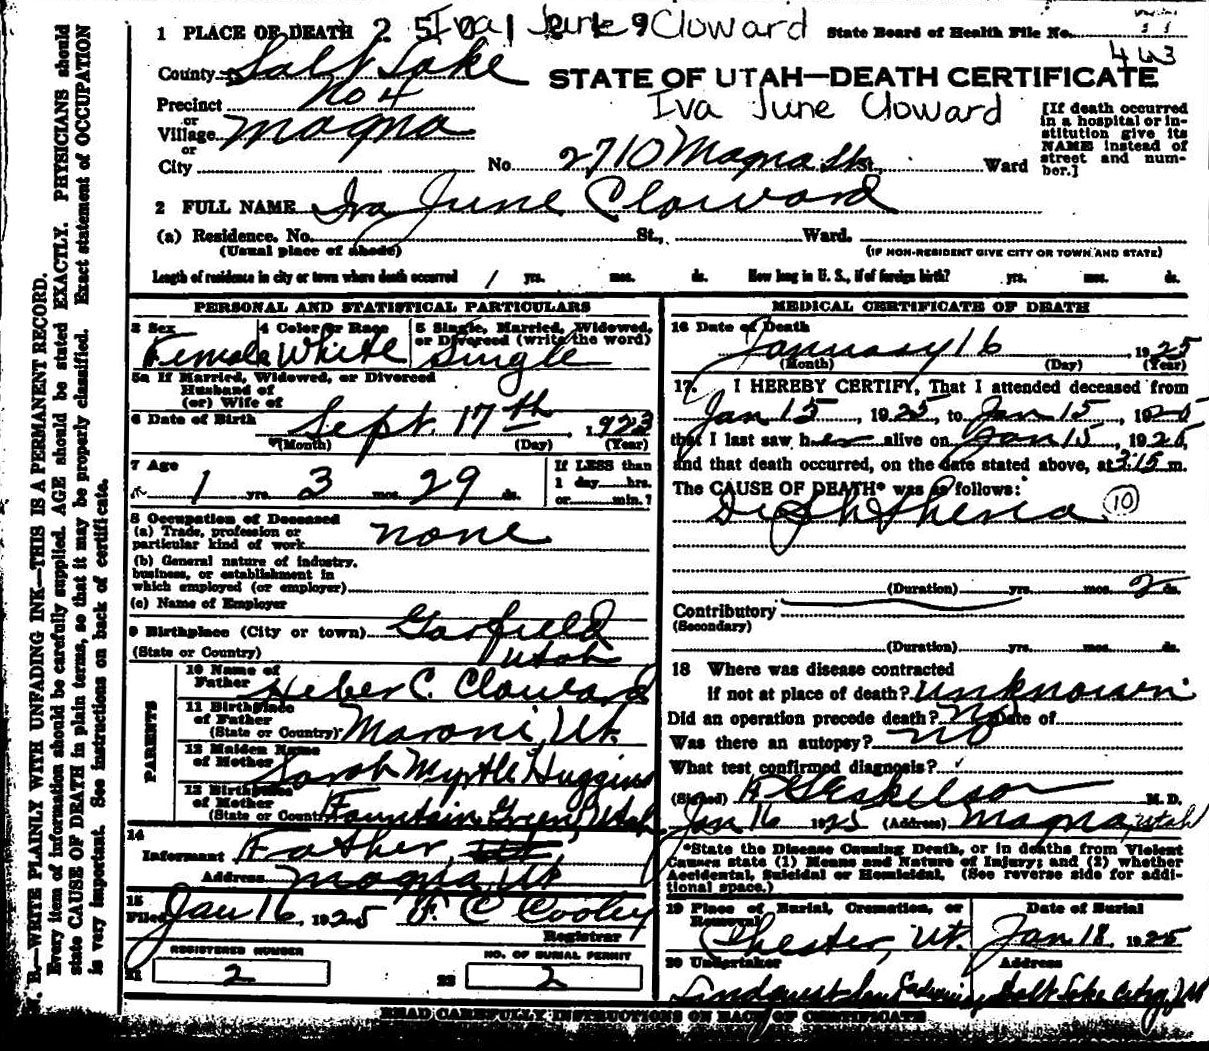 1 PLACE OF DEATH 2 5 Iva June Cloward State Board of Health File No.
443
County Salt Lake
STATE OF UTAH—DEATH CERTIFICATE
Precinct No 4
Iva June Cloward
or
Village Magna
or
City
No. 2710 Magna St. St., Ward
[If death occurred
in a hospital or in-
stitution give its
NAME instead of
street and num-
ber.]
2 FULL NAME Iva June Cloward
(a) Residence. No. St., Ward.
(Usual place of abode) (IF NON-RESIDENT GIVE CITY OR TOWN AND STATE)
Length of residence in city or town where death occurred 1 yrs. mos. ds. How long in U. S., if of foreign birth? yrs. mos. ds.
PERSONAL AND STATISTICAL PARTICULARS
3 Sex 4 Color or Race 5 Single, Married, Widowed,
or Divorced (write the word)
Female White Single
5a If Married, Widowed, or Divorced
Husband of
(or) Wife of
6 Date of Birth Sept. 17th 1923
(Month) (Day) (Year)
7 Age
1 yrs. 3 mos. 29 ds.
If LESS than
1 day hrs.
or min.?
8 Occupation of Deceased
(a) Trade, profession or
particular kind of work none
(b) General nature of industry,
business, or establishment in
which employed (or employer)
(c) Name of Employer
9 Birthplace (City or town) Garfield
(State or Country) Utah
PARENTS
10 Name of
Father Heber C. Cloward
11 Birthplace
of Father
(State or Country) Maroni, Ut.
12 Maiden Name
of Mother Sarah Myrtle Huggins
13 Birthplace
of Mother
(State or Country) Fountain Green, Utah
14
Informant Father
Address Magna, Ut
15
Filed Jan 16 1925 F. C Cooley
Registrar
REGISTERED NUMBER NO. OF BURIAL PERMIT
21 2 22 2
MEDICAL CERTIFICATE OF DEATH
16 Date of Death
January 16 1925
(Month) (Day) (Year)
17. I HEREBY CERTIFY, That I attended deceased from
Jan 15, 1925, to Jan 15, 1925
that I last saw her alive on Jan 15, 1925,
and that death occurred, on the date stated above, at 3:15 m.
The CAUSE OF DEATH* was as follows:
Diphtheria 10
(Duration) yrs. mos. 2 ds.
Contributory
(Secondary)
(Duration) yrs. mos. ds.
18 Where was disease contracted
if not at place of death? unknown
Did an operation precede death? No Date of
Was there an autopsy? no
What test confirmed diagnosis?
(Signed) M. D.
Jan 16 1925 (Address) Magna, Utah
*State the Disease Causing Death, or in deaths from Violent
Causes state (1) Means and Nature of Injury; and (2) whether
Accidental, Suicidal or Homicidal. (See reverse side for addi-
tional space.)
19 Place of Burial, Cremation, or
Removal
Date of Burial
Chester, Ut. Jan 18 1925
20 Undertaker Address
Lindquist Salt Lake City, Ut
READ CAREFULLY INSTRUCTIONS ON BACK OF CERTIFICATE
N. B.—WRITE PLAINLY WITH UNFADING INK—THIS IS A PERMANENT RECORD.
Every item of information should be carefully supplied. AGE should be stated EXACTLY. PHYSICIANS should
state CAUSE OF DEATH in plain terms, so that it may be properly classified. Exact statement of OCCUPATION
is very important. See instructions on back of certificate.